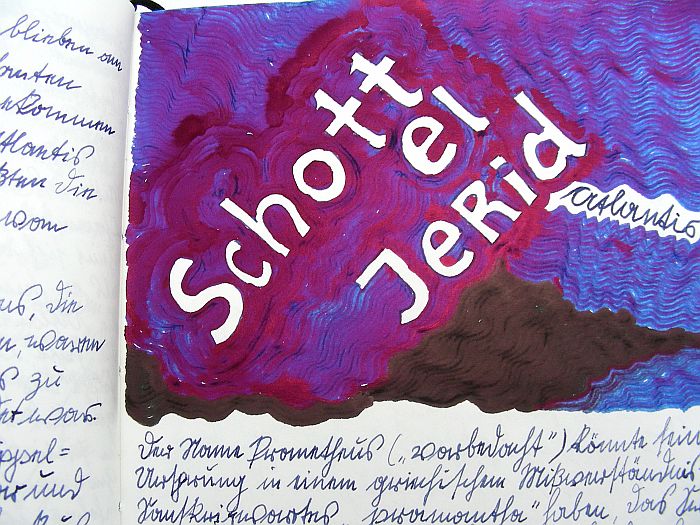 blieben an
kommen
Atlantis
die
von
die
n, waren
s zu
und
Schott
el
JeRid
atlantis
Der Name Prometheus („vorbedacht“) könnte sein
Ursprung in einem griechischen Mißverständnis
Sanskritwortes „pramantha“ haben, das